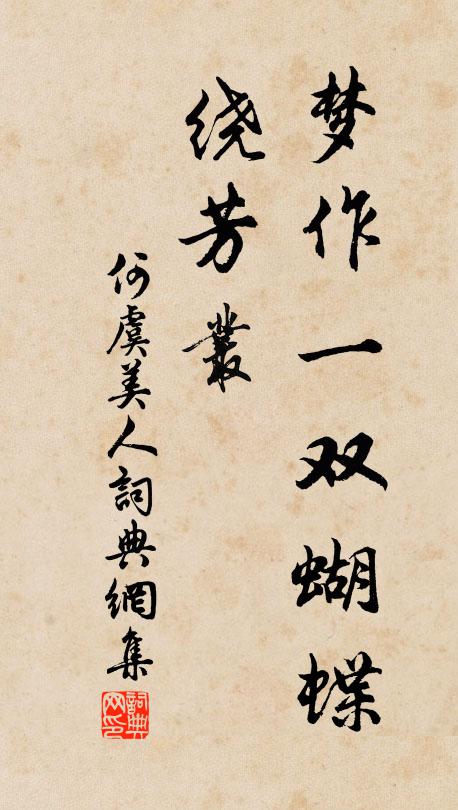 梦作一双蝴蝶
绕芳叢
何虞美人詞典網集
詞典网印